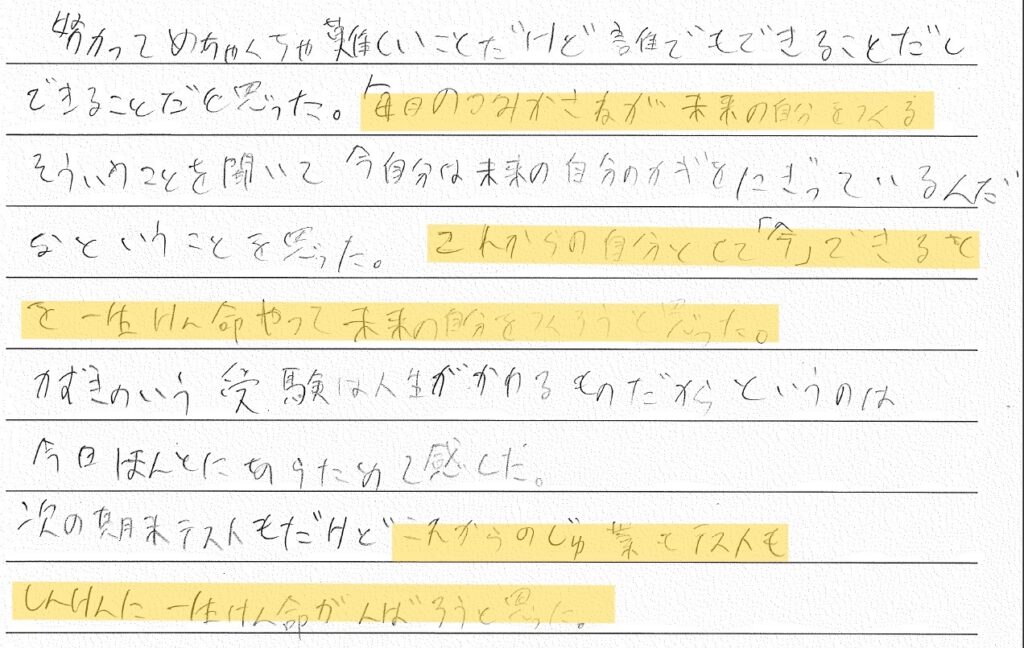 努力ってめちゃくちゃ難しいことだけど誰でもできることだし
できることだと思った。毎日のつみかさねが未来の自分をつくる
そういうことを聞いて今自分は未来の自分のカギをにぎっているんだ
なということを思った。これからの自分として「今」できるを
を一生けん命やって未来の自分をつくろうと思った。
かずきのいう受験は人生がかわるものだからというのは
今日ほんとにあらためて感じた。
次の期末テストもだけどこれからのじゅ業もテストも
しんけんに一生けん命がんばろうと思った。